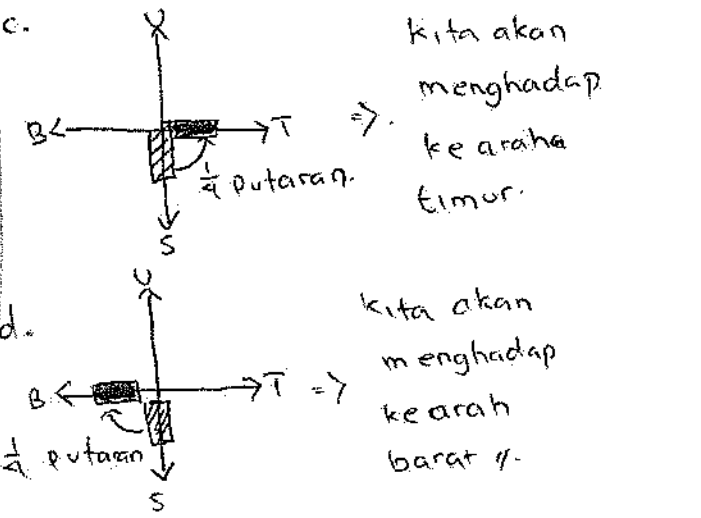 c.
U
B
T
S
1/4 putaran.
=>. kita akan
menghadap
ke araha
timur.
d.
U
B
T
S
1/4 putaan
=> kita akan
menghadap
ke arah
barat //.